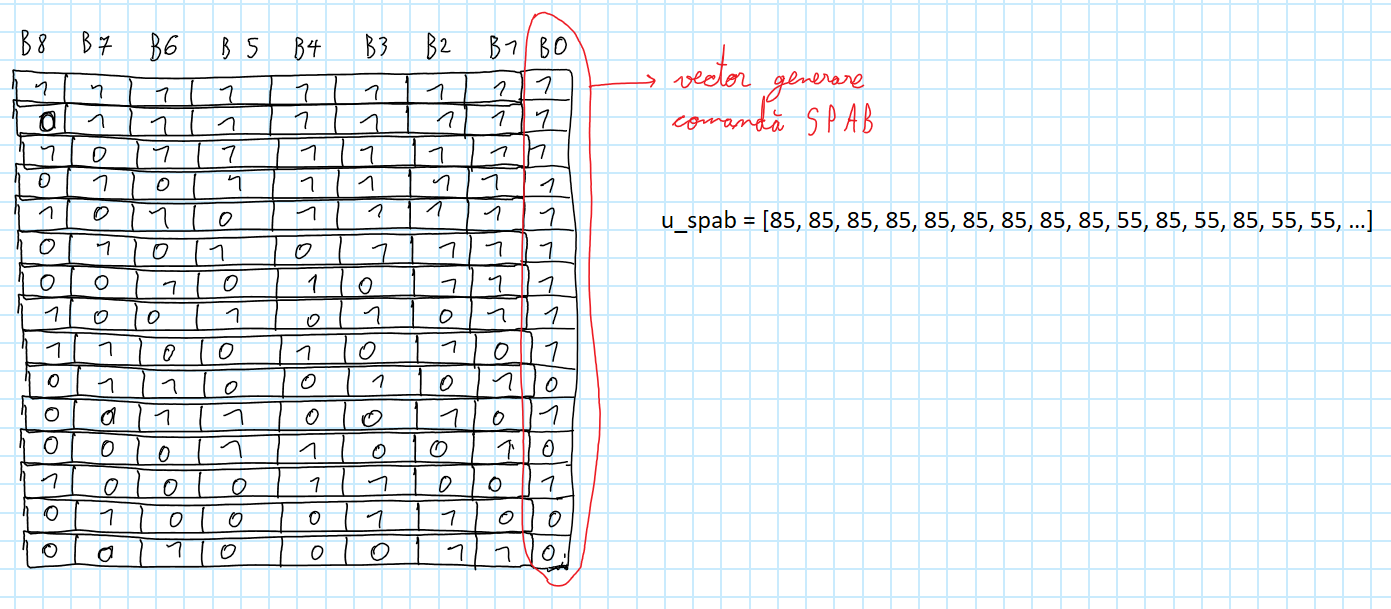 B8 B7 B6 B5 B4 B3 B2 B1 B0
1 1 1 1 1 1 1 1 1
0 1 1 1 1 1 1 1 1
1 0 1 1 1 1 1 1 1
0 1 0 1 1 1 1 1 1
1 0 1 0 1 1 1 1 1
0 1 0 1 0 1 1 1 1
0 0 1 0 1 0 1 1 1
1 0 0 1 0 1 0 1 1
1 1 0 0 1 0 1 0 1
0 1 1 0 0 1 0 1 0
0 0 1 1 0 0 1 0 1
0 0 0 1 1 0 0 1 0
1 0 0 0 1 1 0 0 1
0 1 0 0 0 1 1 0 0
0 0 1 0 0 0 1 1 0
vector generare
comandă SPAB
u_spab = [85, 85, 85, 85, 85, 85, 85, 85, 85, 55, 85, 55, 85, 55, 55, ...]